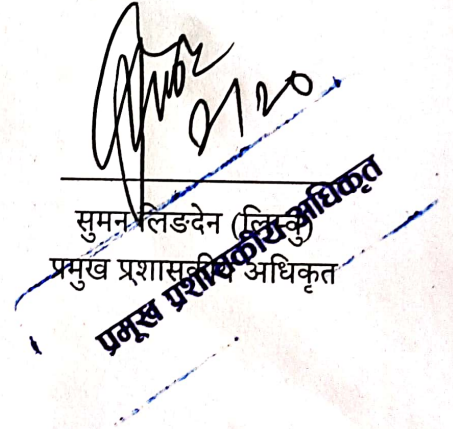 २/२०
सुमन लिङदेन (लिम्बु)
प्रमुख प्रशासकीय अधिकृत
प्रमुख प्रशासकीय अधिकृत